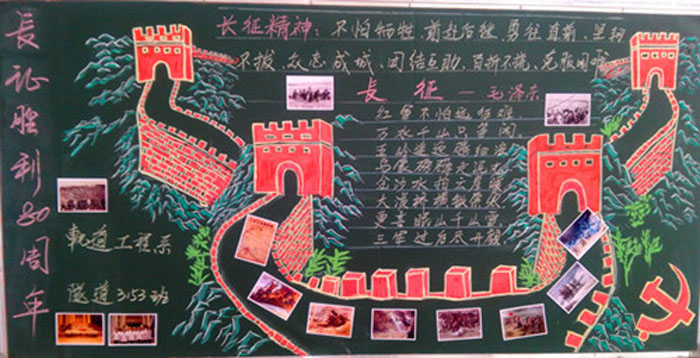 長征胜利80周年
长征精神：不怕牺牲、前赴后继、勇往直前、坚韧
不拔、众志成城、团结互助、百折不挠、克服困难
長征 — 毛泽东
红军不怕远征难
万水千山只等闲
五岭逶迤腾细浪
乌蒙磅礴走泥丸
金沙水拍云崖暖
大渡桥横铁索寒
更喜岷山千里雪
三军过后尽开颜
軌道工程系
隧道3153班